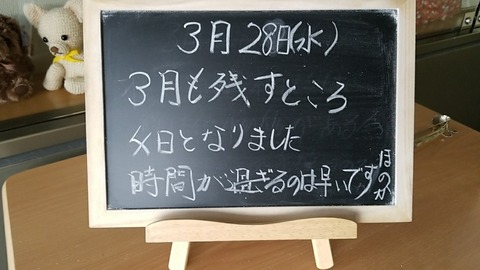 3月28日(水)
3月も残すところ
4日となりました
時間が過ぎるのは早いです
ほのか